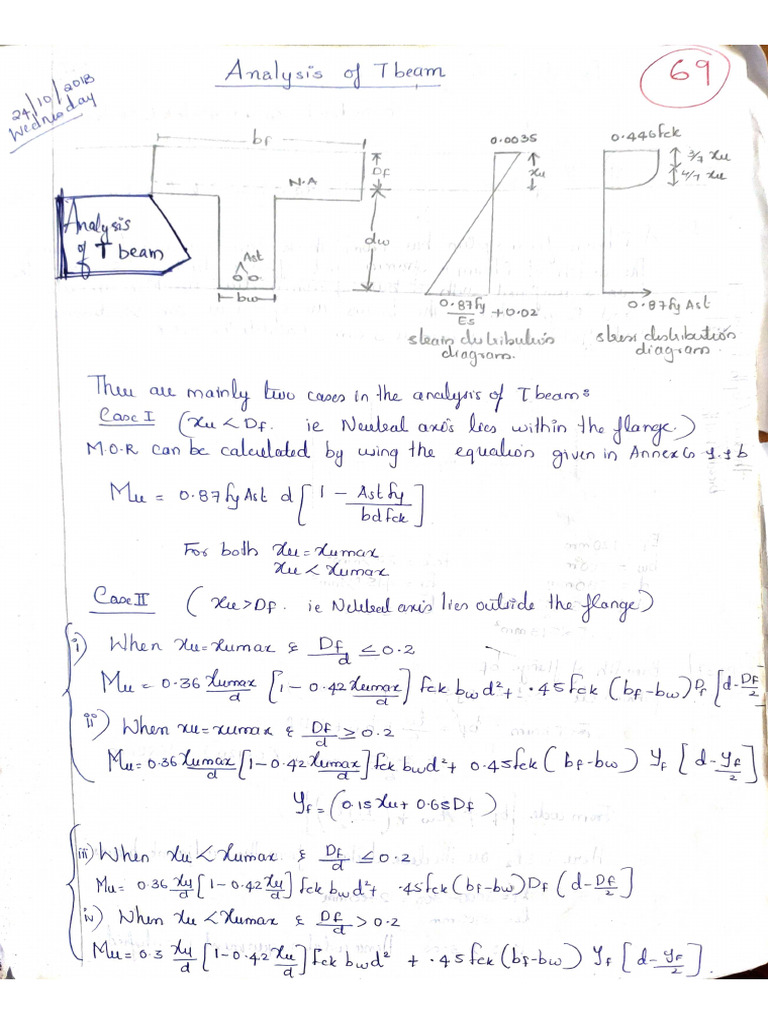 Analysis of T beam
69
24/10/2018
Wednesday
bf
Df
N.A
dw
Ast
bw
Analysis
of T beam
0.0035
xu
0.87fy/Es + 0.02
strain distribution
diagram.
0.446fck
3/7 xu
4/7 xu
0.87fy Ast
stress distribution
diagram.
There are mainly two cases in the analysis of T beams
Case I (xu < Df. ie Neutral axis lies within the flange.)
M.O.R can be calculated by using the equation given in Annex G 1.1 b
Mu = 0.87fy Ast d [1 - Ast fy / bd fck]
For both xu = xumax
xu < xumax
Case II (xu > Df. ie Neutral axis lies outside the flange)
i) When xu = xumax & Df/d ≤ 0.2
Mu = 0.36 xumax/d [1 - 0.42 xumax/d] fck bw d² + .45fck (bf - bw) Df [d - Df/2]
ii) When xu = xumax & Df/d ≥ 0.2
Mu = 0.36 xumax/d [1 - 0.42 xumax/d] fck bw d² + 0.45fck (bf - bw) yf [d - yf/2]
yf = (0.15xu + 0.65Df)
iii) When xu < xumax & Df/d ≤ 0.2
Mu = 0.36 xu/d [1 - 0.42 xu/d] fck bw d² + .45fck (bf - bw) Df (d - Df/2]
iv) When xu < xumax & Df/d > 0.2
Mu = 0.3 xu/d [1 - 0.42 xu/d] fck bw d² + .45fck (bf - bw) yf [d - yf/2].